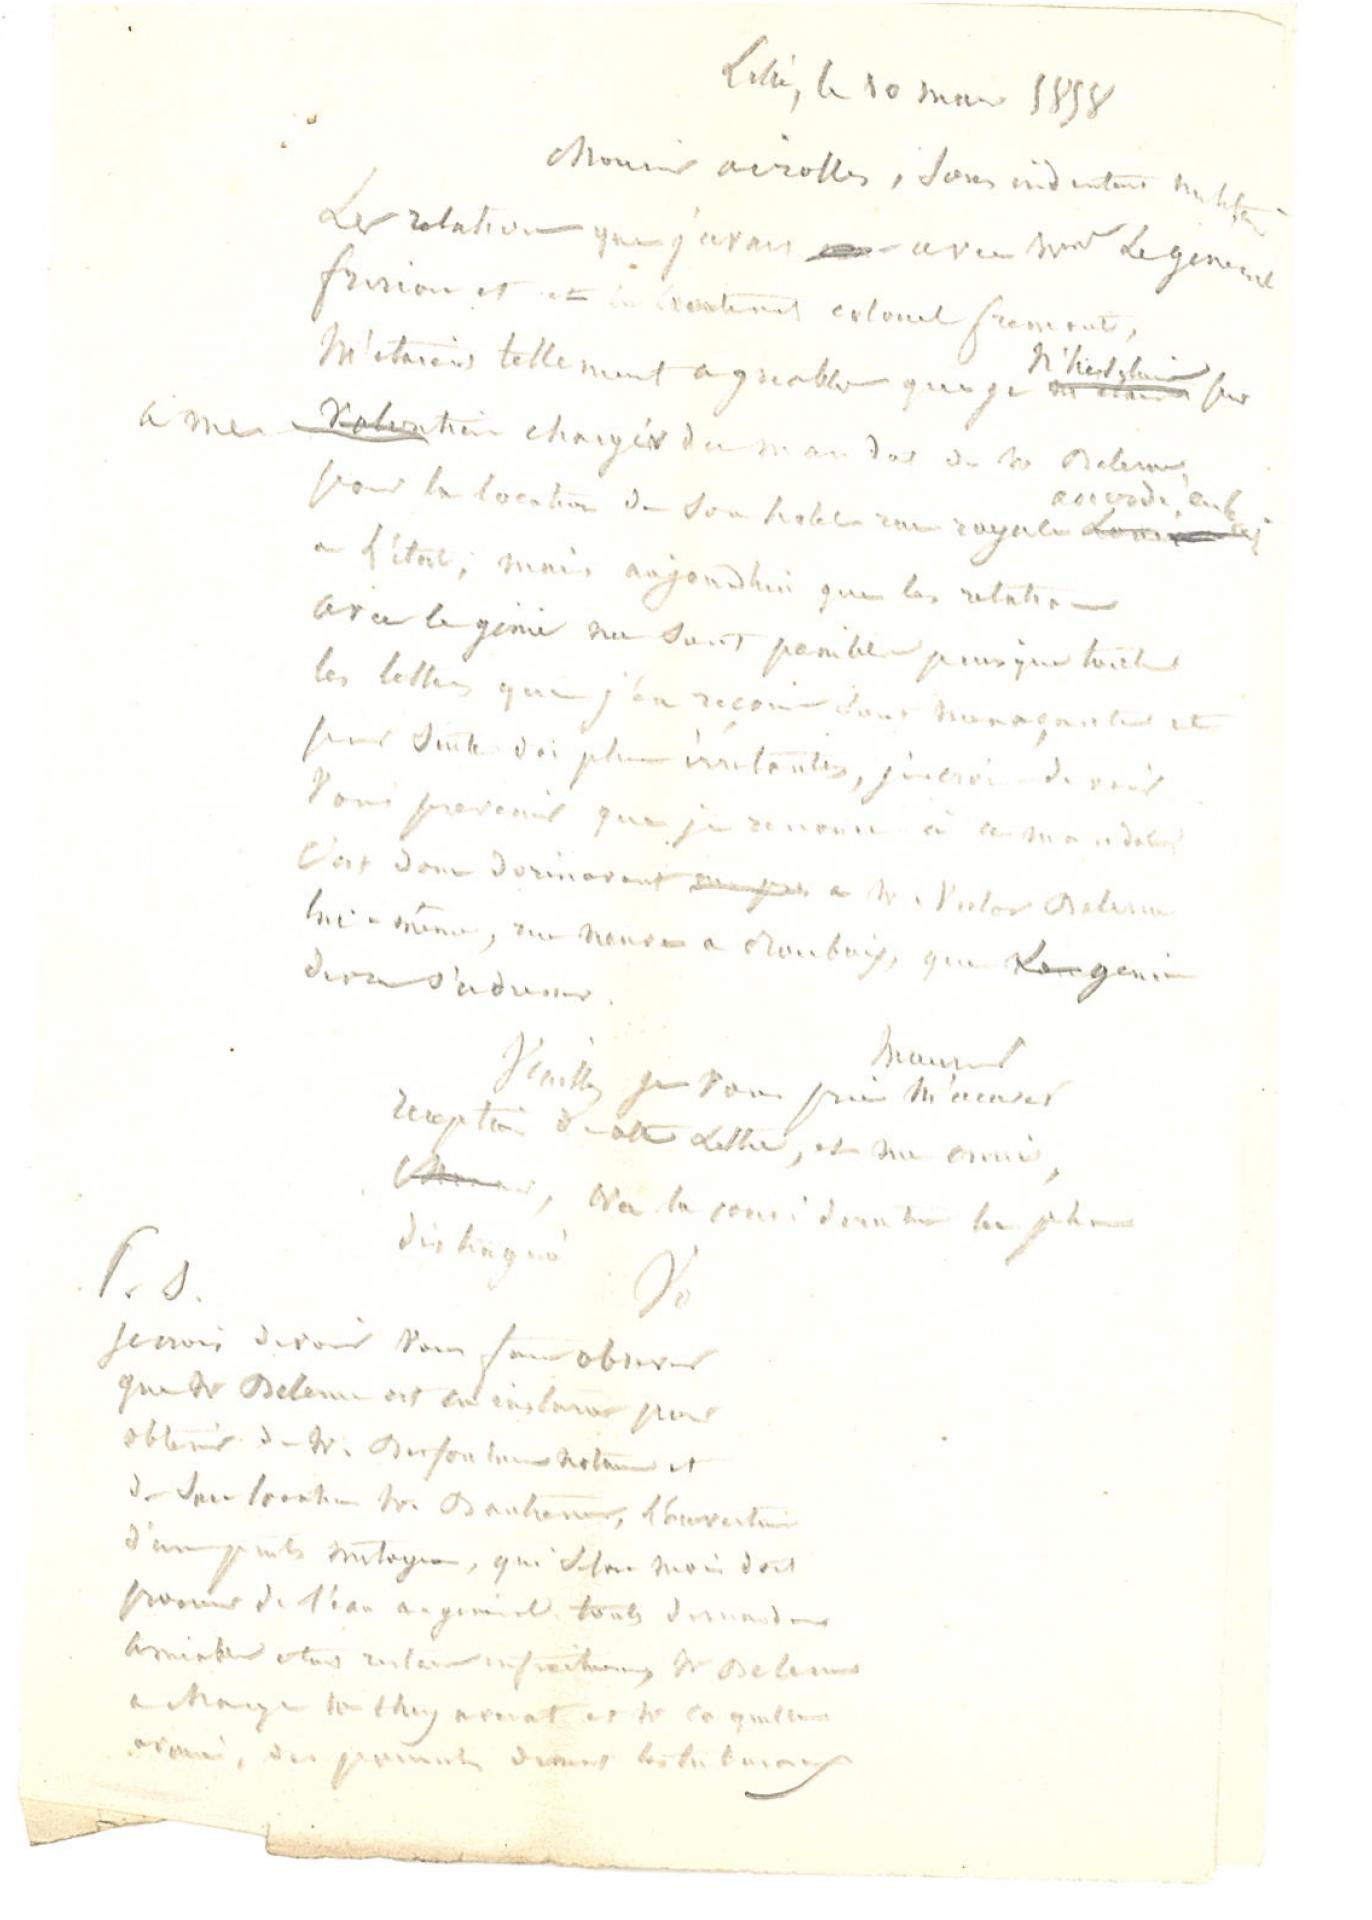 Lille, le 10 mars 1858
Monsieur airolles, Sous intendant militaire
Les relations que j'avais avec Mrs Le general
fririon et et le lieutenant colonel fremont,
M'etaient tellement agreables que je
N'hesitais pas
a me charger du mandat de Mr Delerue
pour la location de son hotel rue royale
accordé, eub
a l'état; mais aujourdhui que les relations
avec le génie me sont penibles puisque toutes
les lettres que j'en reçois sont menaçantes et
par suite des plus irritantes, je crois devoir
Vous prevenir que je renonce à ce mandat
C'est donc dorénavant a Mr. Victor Delerue
lui-même, rue neuve a Roubaix, que Le genie
devra s'adresser.
Monsieur
Veuillez je vous prie M'accuser
reception de cette Lettre, et me croire,
avec la consideration la plus
distinguée
P. S.
Je crois devoir vous faire observer
que Mr Delerue est en instance pour
obtenir de Mr. Desfontaine notaire et
de son locataire Mr. l'ouverture
d'un puits mitoyen, qui selon moi doit
procurer de l'eau au general. toutes demandes
amiables etant restées infructueuses, Mr Delerue
a chargé Mr they avocat et Mr coquelin
avoué, des poursuites devant les tribunaux